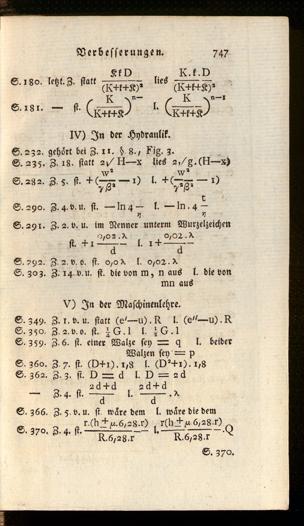 Verbesserungen. 747
S. 180. letzt. Z. statt KfD/(K+f+K)² lies K.f.D/(K+f+K)²
S. 181. — st. (K/(K+f+K))ⁿ⁻ l. (K/(K+f+K))ⁿ⁻¹
IV) In der Hydraulik.
S. 232. gehört bei Z. 11. § 8., Fig. 3.
S. 235. Z. 18. statt 2√ H—x lies 2√g.(H—x)
S. 282. Z. 5. st. +(w²/γβ² — 1) l. +(w²/γ²β² — 1)
S. 290. Z. 4. v. u. st. — ln 4 — /η l. — ln. 4 t/η
S. 291. Z. 2. v. u. im Nenner unterm Wurzelzeichen
st. +1 0,02.λ/d l. 1+ 0,02.λ/d
S. 792. Z. 2. v. o. st. 0,0λ l. 0,02.λ
S. 303. Z. 14. v. u. st. die von m, n aus l. die von
mn aus
V) In der Maschinenlehre.
S. 349. Z. 1. v. u. statt (e′—u).R l. (e″—u).R
S. 350. Z. 2. v. o. st. ¼ G.l l. ⅓ G.l
S. 359. Z. 6. st. einer Walze sey = q l. beider
Walzen sey = p
S. 360. Z. 7. st. (D+1).1,8 l. (D²+1).1,8
S. 362. Z. 3. st. D = d l. D = 2d
— Z. 4. st. 2d+d/d l. 2d+d/d .λ
S. 366. Z. 5. v. u. st. wäre dem l. wäre die dem
S. 370. Z. 4. st. r.(h±μ.6,28.r)/R.6,28.r l. r(h±μ.6,28.r)/R.6,28.r .Q
S. 370.